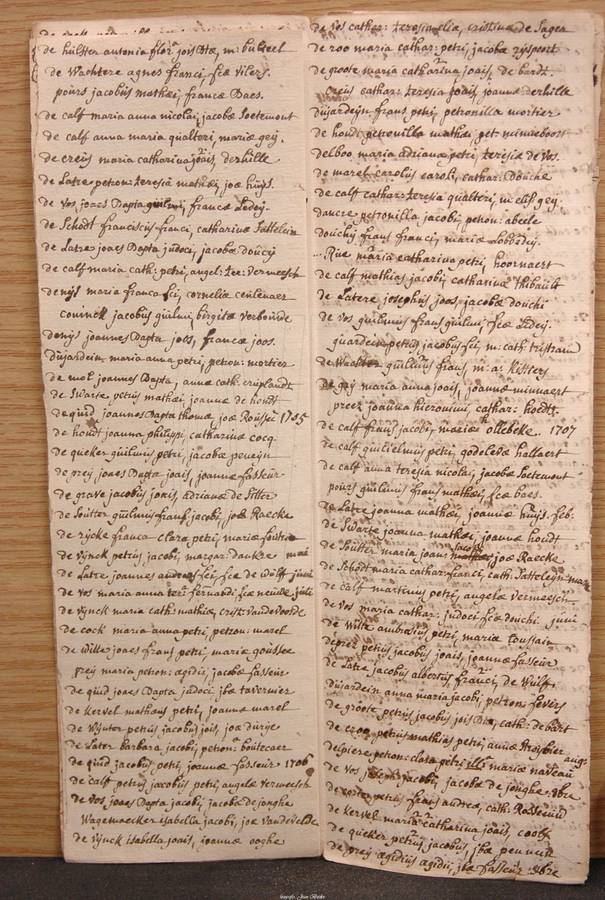 de hulster antonia flor jois Btæ, m: buliell
de Wachtere agnes franci, fcæ vilers.
pours jacobus mathei, francæ Baes.
de calf maria anna nicolai, jacobæ Soetemout
de calf anna maria gualteri, mariæ geÿ.
de creus maria catharina joais, derhille
de Latre petron: teresia mathæi, joæ huÿs.
de vos joaes Bapta guilmi, francæ Ledeÿ.
de Schodt franciscus franci, catharinæ Sattelein
de Latre joaes Bapta judoci, jacobæ doucÿ
de calf maria cath: petri, angel: ter: vermeesch
denÿs maria franca fci, cornelia ceulenaer
counck jacobus guilmi, birgitæ verbourde
denÿs joannes Bapta joos, francæ joos.
dujardein maria anna petri, petron: mortier
de mol joannes Bapta, annæ cath: cruplandt
de Swarte petrus mathæi, joannæ de hondt
de quid joannes Bapta thomæ, joæ Roussee 1705
de hondt joanna philippi catharinæ cocq.
de queker guilmus petri, jacobæ peneÿn
de preÿ joaes Bapta joais, joannæ fasseur
de grave jacobus joais, adrianæ de Sitter
de Soutter guilmus franc: jacobi, joæ Raecke
de rÿcke franca clara petri, mariæ
de vÿnck petrus jacobi, margar: dankre maii
de Latre joannes fci, fcæ de wulf junii
de vos maria anna ter: fernandi fcæ julii
de vÿnck maria cath: mathiæ, crist: vandevoorde
de cock maria anna petri, petron: marel
de Wille joaes frans petri, mariæ goussee
preÿ maria petron: ægidii, jacobæ fasseur
de quid joaes Bapta judoci, jbæ tavernier
de kervel matheus petri, joannæ marel
de Wÿnter petrus jacobus jois, joæ durÿe
de Later barbara jacobi, petron: boutecaer
de quid jacobus petri, joannæ fasseur 1706
de calf petrus jacobus petri, angelæ vermeesch
de vos joaes Bapta jacobi, jacobæ de jonghe
Wagemaecker isabella jacobi, joæ vandevelde
de vÿnck isabella joais, joannæ ooghe
de vos cathar: teresia eliæ, cristinæ de Sager
de roo maria cathar: petri, jacobæ rÿspoort
de groote maria catharina joais, de bardt.
creus cathar: teresia joais, joannæ derhille
dujardeÿn frans petri, petronilla mortier
de hondt petronilla mathæi, pet: minneboort
delboo maria adriana petri, teresiæ de vos.
de maret carolus caroli, cathar: Douche
de calf cathar: teresia gualteri, m: elis: geÿ.
dancre petronilla jacobi, petron: abeele
douchÿ frans franci, mariæ Lobbedeÿ.
Rue maria catharina petri, hoornaert
de calf mathias jacobi, catharinæ thibault
de Latere josephus joos, jacobæ douchi
de vos guilmus frans guilmi, fcæ Ledeÿ.
guardein petrus jacobus fci, m: cath: tristram
de Wachter guilmus frans, m: a: Kitters
de geÿ maria anna joais, joannæ minnaert
preez joanna hieronimi, cathar: hoedts.
de calf frans jacobi, mariæ ollebeke. 1707
de calf guilielmus petri, godelevæ hallaert
de calf anna teresia nicolai, jacobæ Soetemout
pours guilmus frans mathæi, fcæ baes.
de Latre joanna mathæi, joannæ huÿs. feb:
de Swarte joanna mathæi, joannæ hondt
de Soutter maria joan: jacobi joæ Raecke.
de Schodt maria cathar: franci, cath: Satteleÿn mar
de calf martinus petri, angelæ vermeesch
de vos maria cathar: judoci fcæ douchi junii
de Witte ambrosius petri, mariæ toussain
depreÿ petrus jacobus joais, joannæ fasseur
de Latre jacobus albertus franci, de Wulf.
dujardein anna maria jacobi, petron: fevers
de groote petrus jacobus jois Bta, cath: de bart
de petrus mathias petri, annæ aug:
depiere petron: clara petri mariæ naveau
de vos jacobi, jacobæ de jonghe: 8bre
de petrus frans andreæ, cath: Rosseeuw
de kervel maria catharina joais, cools
de queker petrus jacobus, jbæ peneÿn
de preÿ ægidius ægidii, jbæ fasseur: 9bre